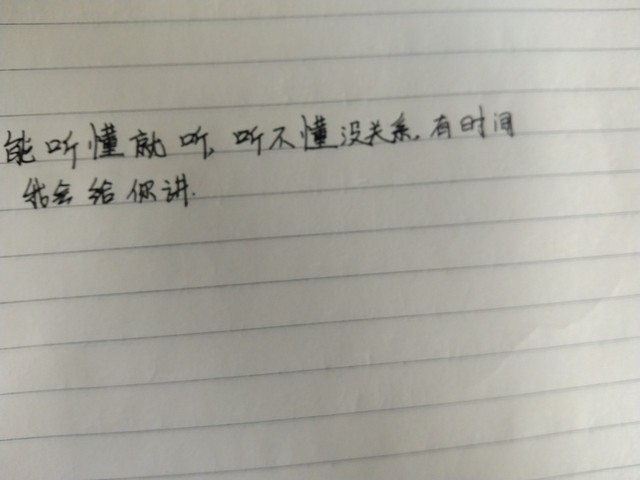 能听懂就听,听不懂没关系.有时间
我会给你讲.